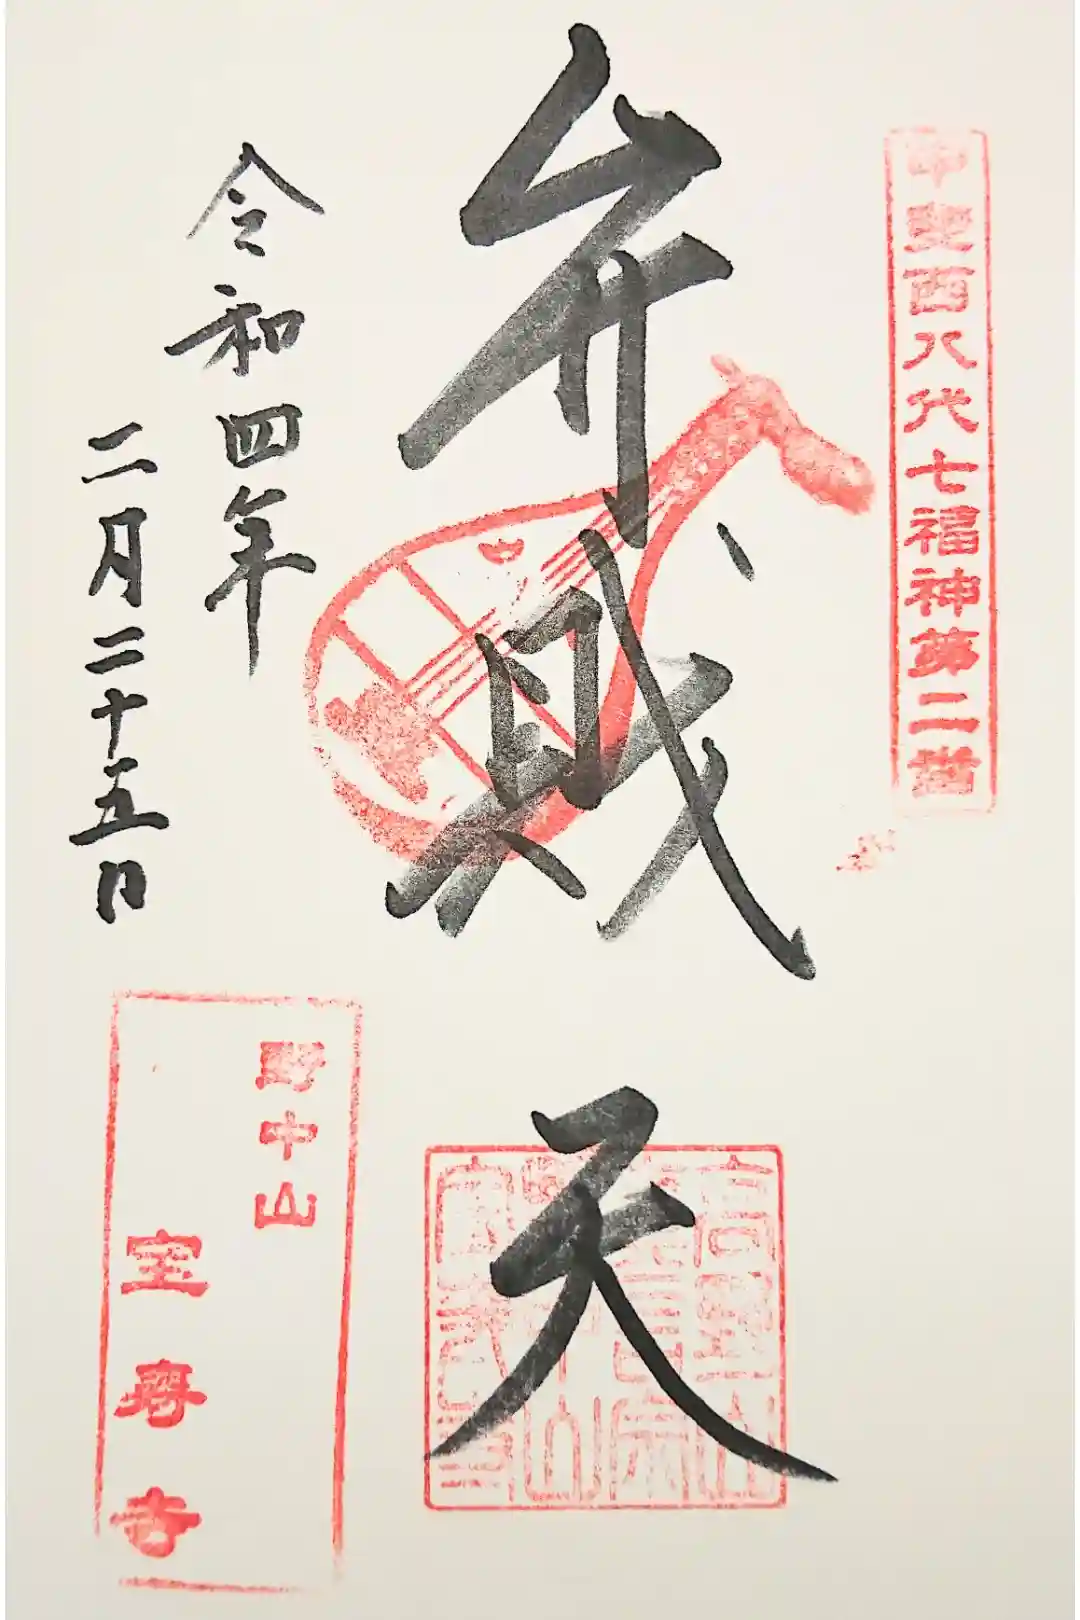 甲斐西八代七福神第二番
弁財天
令和四年
二月二十五日
野中山
宝寿寺
高野山
真言宗